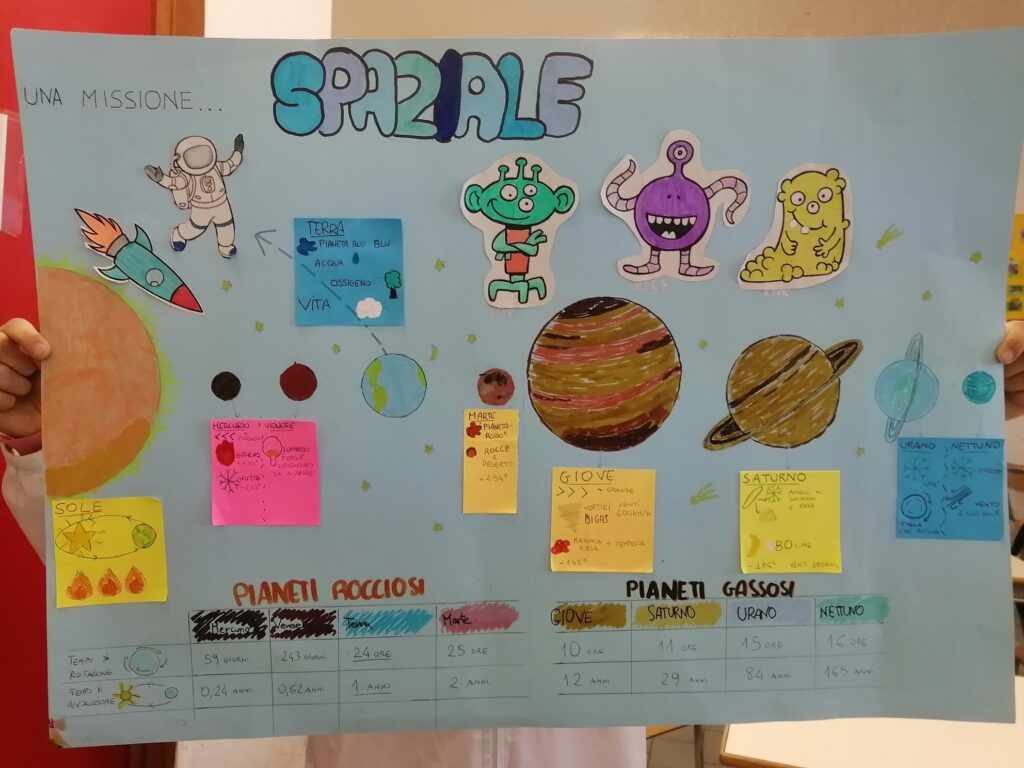 UNA MISSIONE...
SPAZIALE
TERRA
PIANETA BLU BLU
ACQUA
OSSIGENO
VITA
MERCURIO
GIORNO
NOTTE
VENERE
LUMINOSO
MARTE
PIANETA
ROSSO
ROCCE
E
DESERTO
+254°
GIOVE
>>> + GRANDE
VORTICI VENTI
DI GAS 600KM/H
MACCHIA = TEMPESTA
ROSSA
-145°
SATURNO
ANELLI DI
80 LUNE
-186° VENTI 1800KM/H
URANO
PALLA
NETTUNO
VENTO
SOLE
PIANETI ROCCIOSI
Mercurio Venere Terra Marte
TEMPO DI
ROTAZIONE
59 GIORNI 243 GIORNI 24 ORE 25 ORE
TEMPO DI
RIVOLUZIONE
0,24 ANNI 0,62 ANNI 1 ANNO 2 ANNI
PIANETI GASSOSI
GIOVE SATURNO URANO NETTUNO
10 ORE 11 ORE 15 ORE 16 ORE
12 ANNI 29 ANNI 84 ANNI 165 ANNI